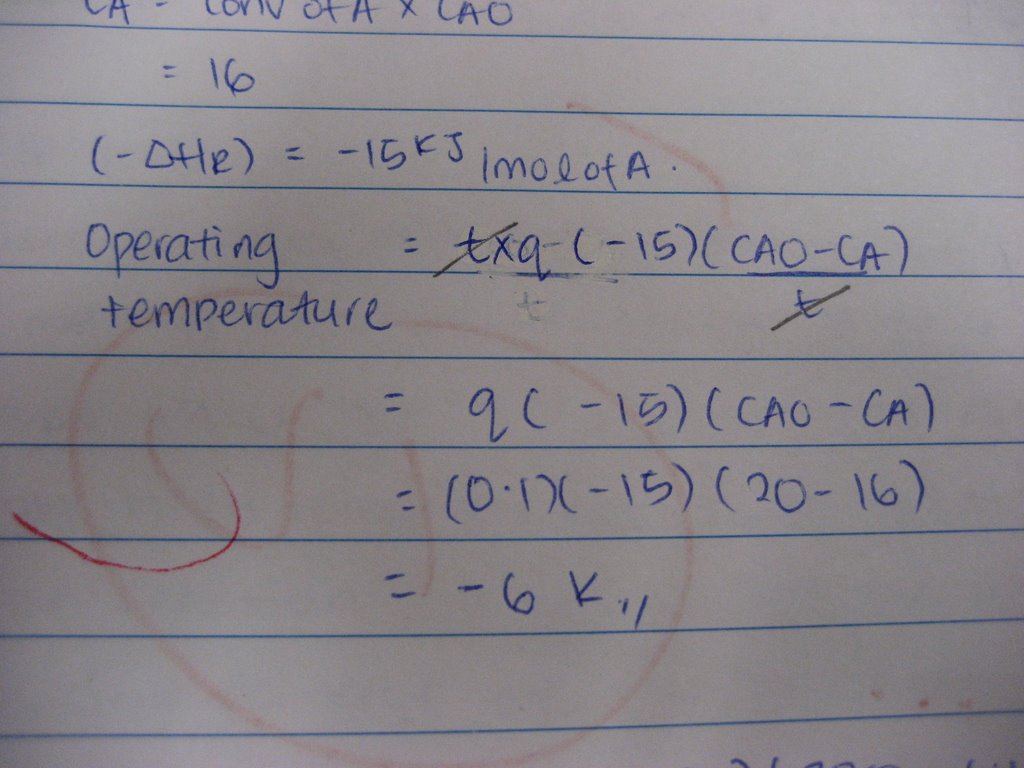 CA = conv of A x CAO
= 16
(-ΔHR) = -15 KJ /mol of A.
Operating = txq (-15)(CAO-CA)
temperature t t
= q(-15)(CAO-CA)
= (0.1)(-15)(20-16)
= -6 K,,